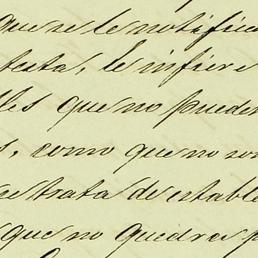 que se le notific
tenta, le infiere
les que no pueden
s, como que no son
se trata de estable
que no quedra p